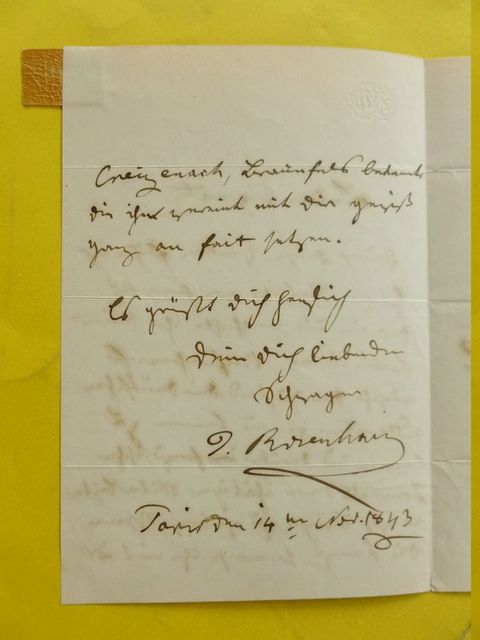 Creizenach, Braunfels bekannt
die ihn vereint mit dir gewiß
ganz au fait setzen.
Es grüßt dich herzlich
Dein dich liebender
Schwager
J. Rosenhain
Paris den 14 Nov. 1843